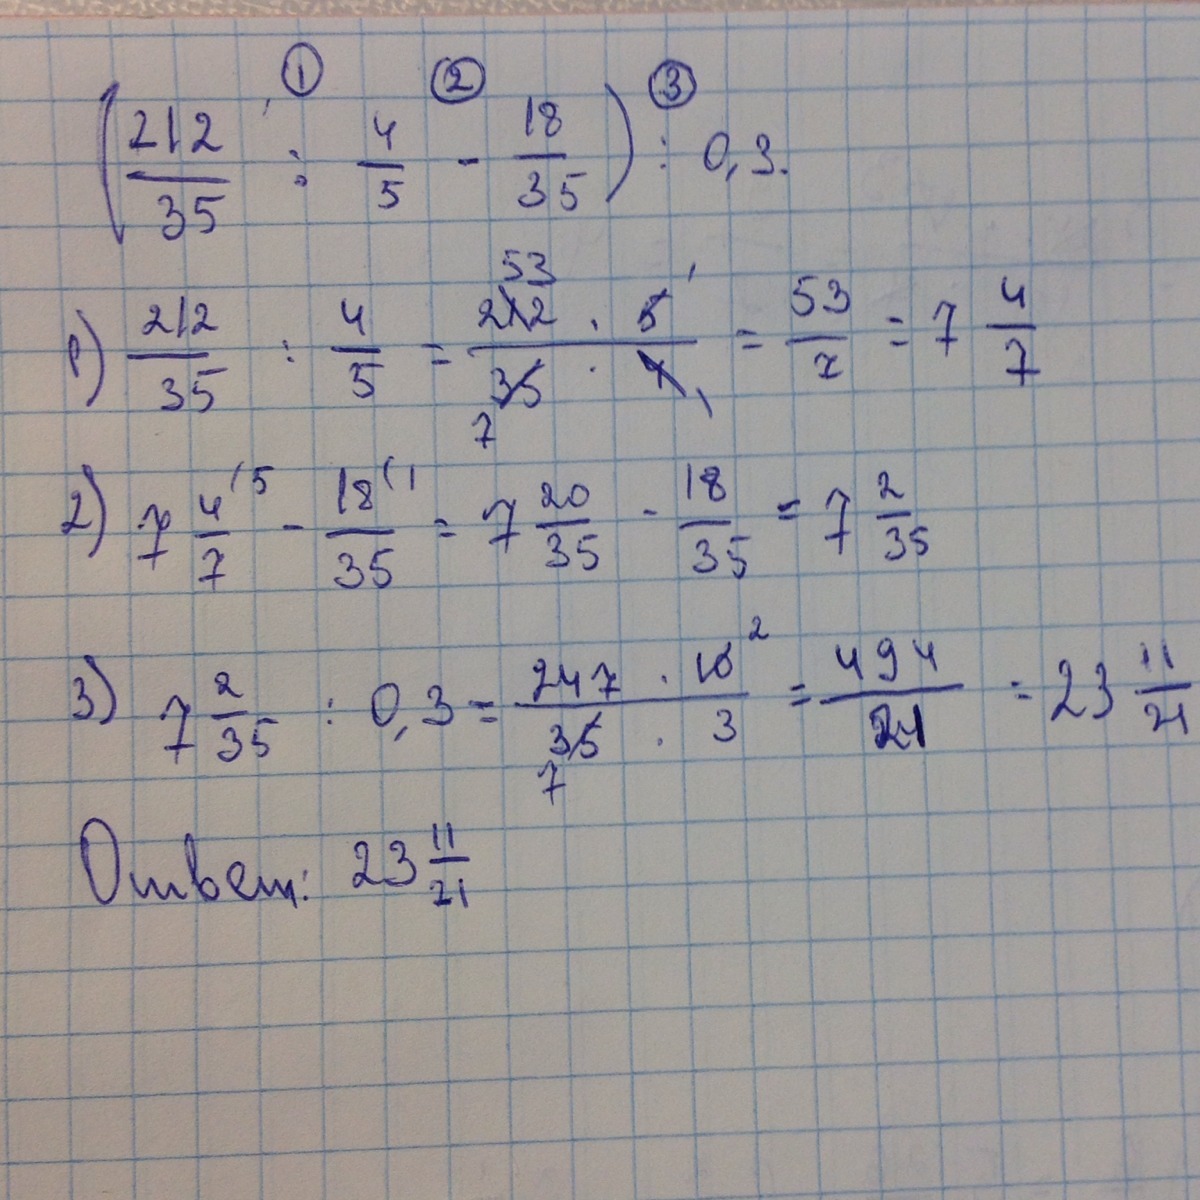 ① ② ③
(212/35 : 4/5 - 18/35) : 0,3.
1) 212/35 : 4/5 = 212 · 5 / 35 · 4 = 53/7 = 7 4/7
2) 7 4/7 - 18/35 = 7 20/35 - 18/35 = 7 2/35
3) 7 2/35 : 0,3 = 247 · 10 / 35 · 3 = 494/21 = 23 11/21
Ответ: 23 11/21